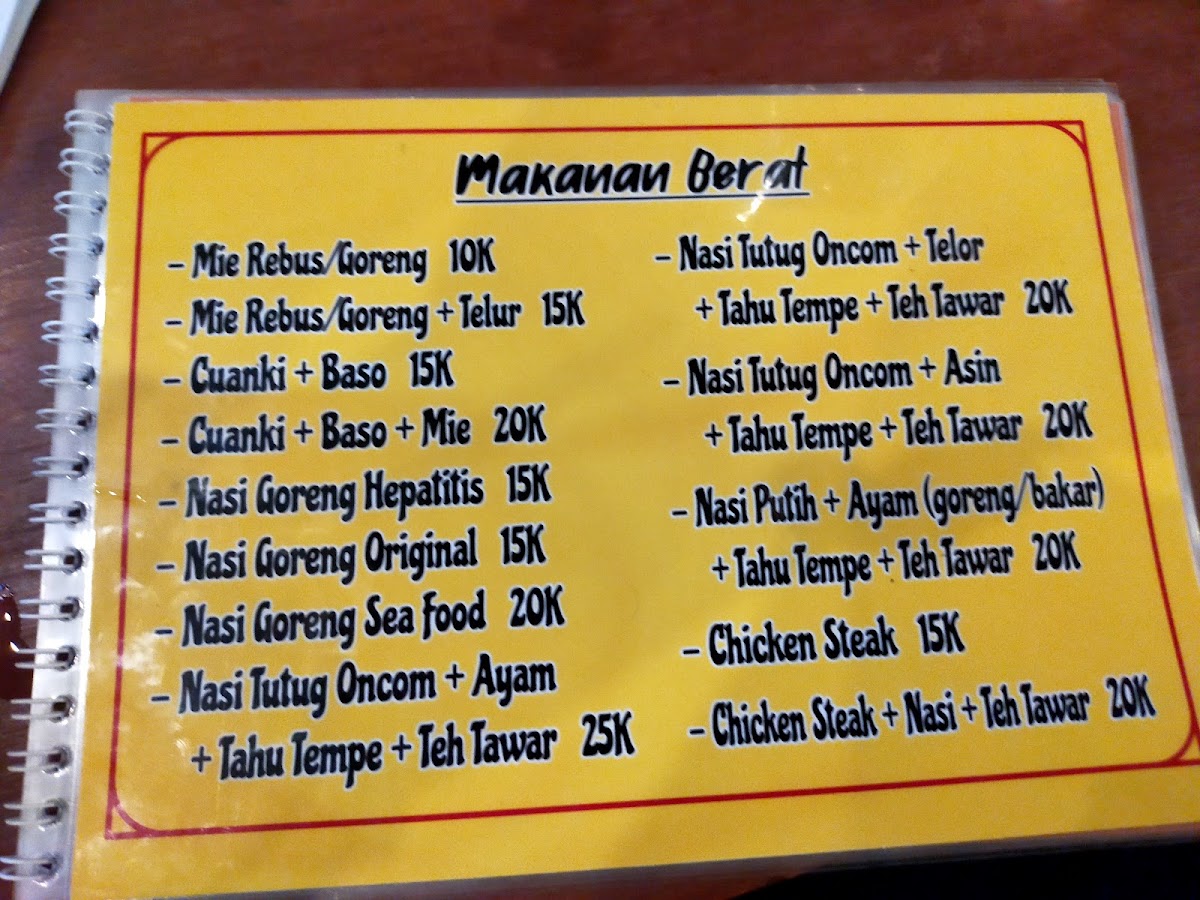 Makanan Berat
- Mie Rebus/Goreng 10K
- Mie Rebus/Goreng + Telur 15K
- Cuanki + Baso 15K
- Cuanki + Baso + Mie 20K
- Nasi Goreng Hepatitis 15K
- Nasi Goreng Original 15K
- Nasi Goreng Sea Food 20K
- Nasi Tutug Oncom + Ayam
+ Tahu Tempe + Teh Tawar 25K
- Nasi Tutug Oncom + Telor
+ Tahu Tempe + Teh Tawar 20K
- Nasi Tutug Oncom + Asin
+ Tahu Tempe + Teh Tawar 20K
- Nasi Putih + Ayam (goreng/bakar)
+ Tahu Tempe + Teh Tawar 20K
- Chicken Steak 15K
- Chicken Steak + Nasi + Teh Tawar 20K